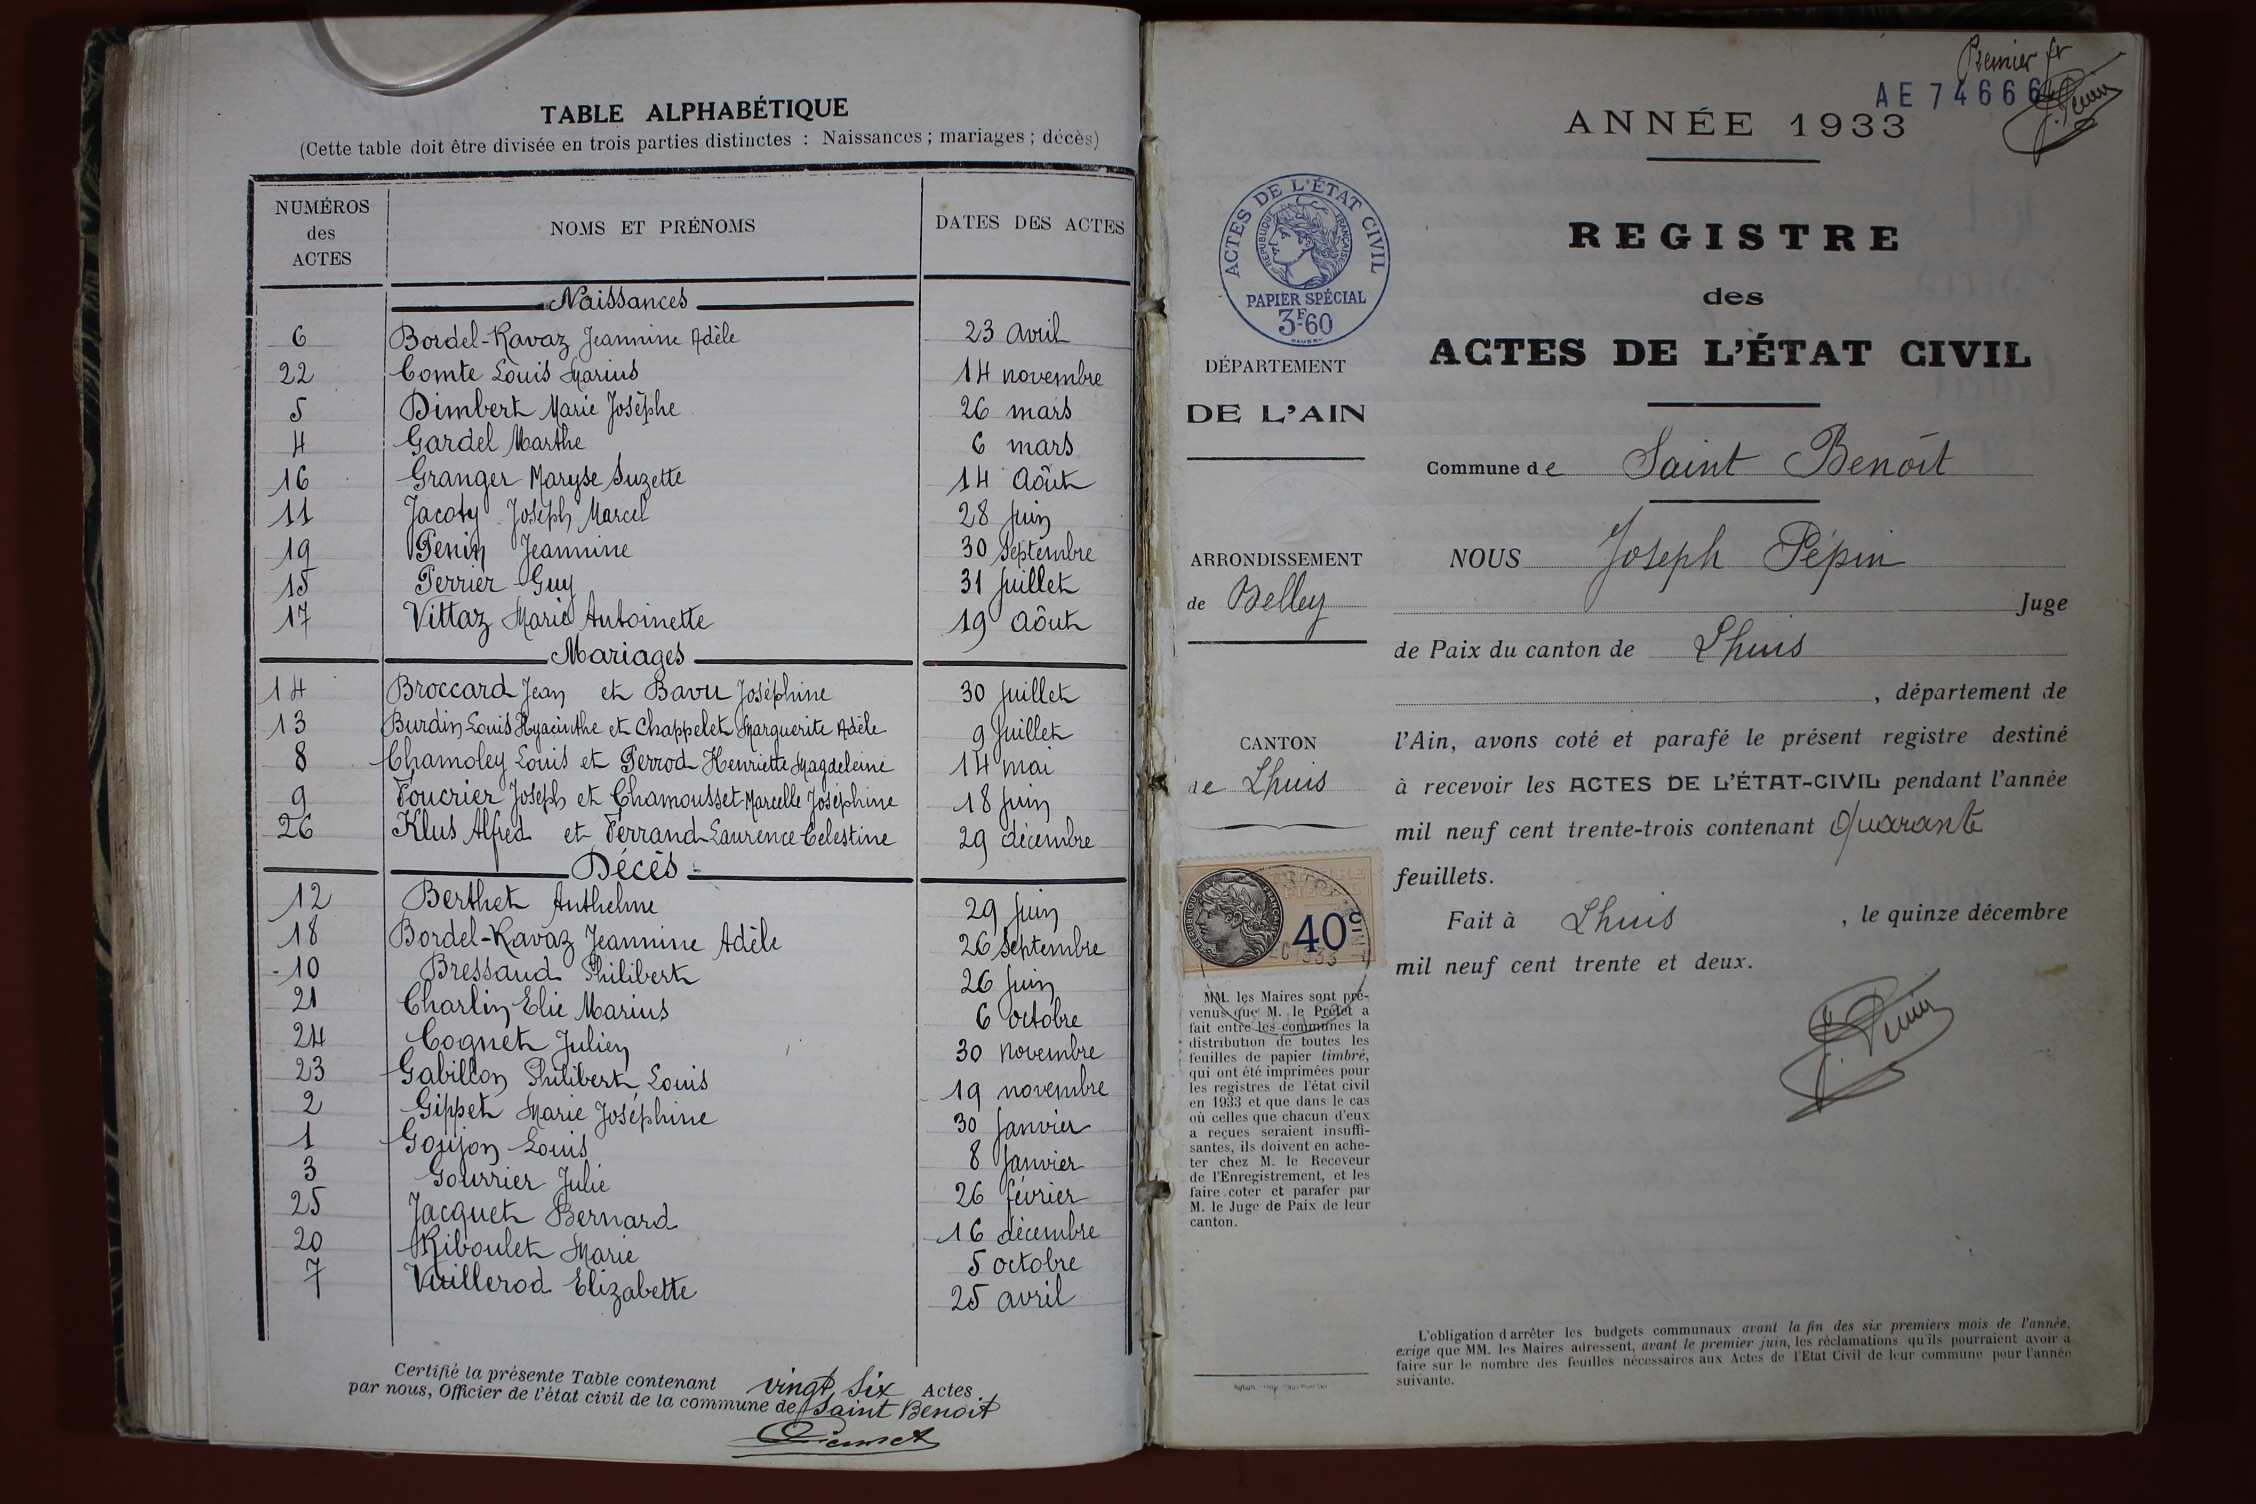 TABLE ALPHABÉTIQUE
(Cette table doit être divisée en trois parties distinctes : Naissances ; mariages ; décès)
NUMÉROS des ACTES NOMS ET PRÉNOMS DATES DES ACTES
Naissances
6 Bordel-Ravaz Jeannine Adèle 23 avril
22 Comte Louis Marius 14 novembre
5 Dimbert Marie Josèphe 26 mars
4 Gardel Marthe 6 mars
16 Granger Maryse Suzette 14 Aôut
11 Jacoty Joseph Marcel 28 juin
19 Penin Jeannine 30 Septembre
15 Perrier Guy 31 Juillet
17 Vittaz Marie Antoinette 19 Aôut
Mariages
14 Broccard Jean et Bavu Joséphine 30 Juillet
13 Burdin Louis Hyacinthe et Chappelet Marguerite Adèle 9 Juillet
8 Chamoley Louis et Perrod Henriette Magdeleine 14 mai
9 Foucrier Joseph et Chamousset Marcelle Joséphine 18 Juin
26 Klus Alfred et Ferrand Laurence Celestine 29 décembre
Décès
12 Berthet Anthelme 29 Juin
18 Bordel-Ravaz Jeannine Adèle 26 Septembre
10 Bressaud Philibert 26 Juin
21 Charlin Elie Marius 6 octobre
24 Cognet Julien 30 novembre
23 Gabillon Philibert Louis 19 novembre
2 Gippet Marie Joséphine 30 Janvier
1 Goujon Louis 8 Janvier
3 Gourrier Julie 26 février
25 Jacquet Bernard 16 décembre
20 Riboulet Marie 5 octobre
7 Vuillerod Elizabette 25 avril
Certifié la présente Table contenant vingt six Actes
par nous, Officier de l'état civil de la commune de Saint Benoit
Premier
AE 74666
ANNÉE 1933
ACTES DE L'ÉTAT CIVIL
RÉPUBLIQUE FRANÇAISE
PAPIER SPÉCIAL
3F-60
REGISTRE
des
ACTES DE L'ÉTAT CIVIL
DÉPARTEMENT
DE L'AIN
Commune de Saint Benoît
ARRONDISSEMENT
de Belley
NOUS Joseph Pépin
Juge
de Paix du canton de Lhuis
, département de
l'Ain, avons coté et parafé le présent registre destiné
à recevoir les ACTES DE L'ÉTAT-CIVIL pendant l'année
mil neuf cent trente-trois contenant quarante
feuillets.
Fait à Lhuis , le quinze décembre
mil neuf cent trente et deux.
CANTON
de Lhuis
40c
MM. les Maires sont pré-
venus que M. le Préfet a
fait entre les communes la
distribution de toutes les
feuilles de papier timbré,
qui ont été imprimées pour
les registres de l'état civil
en 1933 et que dans le cas
où celles que chacun d'eux
a reçues seraient insuffi-
santes, ils doivent en ache-
ter chez M. le Receveur
de l'Enregistrement, et les
faire coter et parafer par
M. le Juge de Paix de leur
canton.
L'obligation d'arrêter les budgets communaux avant la fin des six premiers mois de l'année,
exige que MM. les Maires adressent, avant le premier juin, les réclamations qu'ils pourraient avoir à
faire sur le nombre des feuilles nécessaires aux Actes de l'Etat Civil de leur commune pour l'année
suivante.